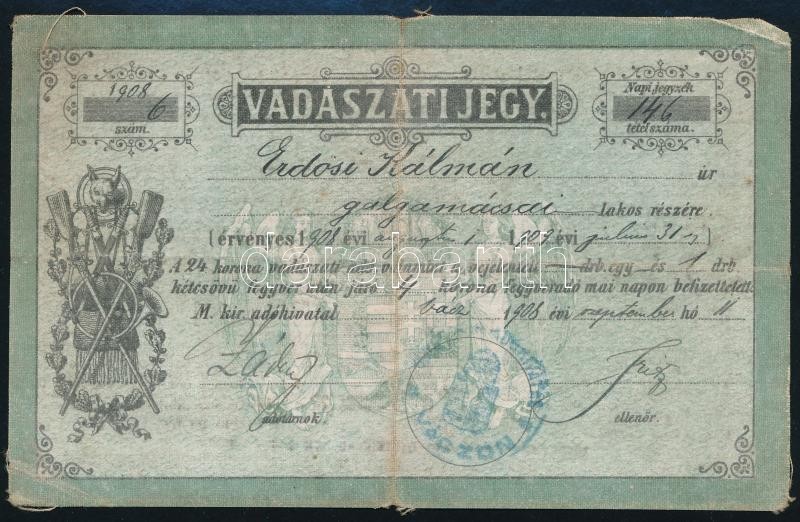 1908
6
szám.
VADÁSZATI JEGY.
Napi jegyzék
146
tétel száma.
Erdősi Kálmán úr
galgamácsai lakos részére.
(érvényes 1908 évi augusztus 1 1909 évi július 31 ig)
A 24 korona vadászati adó valamint a bejelentett — drb. egy és 1 drb
kétcsövű fegyver után járó 4 korona fegyveradó mai napon befizettetett.
M. kir. adóhivatal Vácz 1908 évi szeptember hó 11
adótárnok. ellenőr.
VÁCZON
darabanth.com